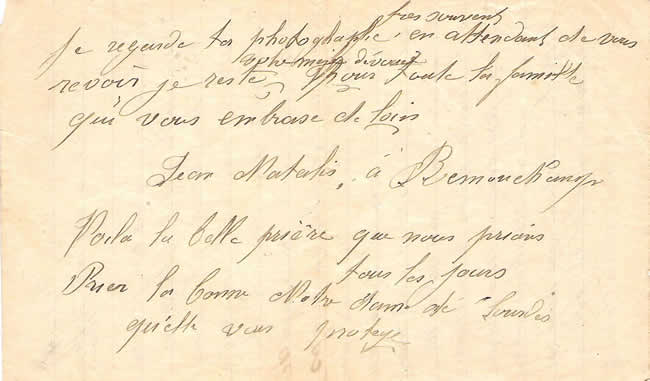 très souvent
Je regarde ta photographie, en attendant de vous
votre mari dévoué
revoir je reste pour toute la famille
qui vous embrase de loin
Jean Natalis, à Remouchamps
Voila la belle prière que nous prions
tous les jours
Prier la bonne Notre dame de Lourdes
qu'elle vous protege